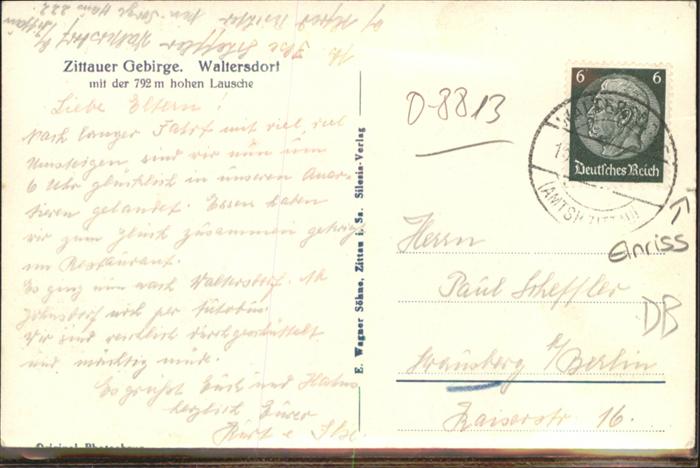 Zittauer Gebirge. Waltersdorf
mit der 792 m hohen Lausche
Liebe Eltern!
Nach langer Fahrt mit viel, viel
Umsteigen sind wir nun um
6 Uhr glücklich in unseren Quar-
tieren gelandet. Essen haben
wir zum Glück zusammen gekriegt
im Restaurant.
Es ging nun nach Waltersdorf. Ab
Johnsdorf noch per Autobus.
Wir sind reichlich durchgeschüttelt
und mächtig müde.
Es grüsst Euch und
herzlich Eurer
Kurt u. Ilse
Ilse Scheffler Waltersdorf b/Zittau
b/ Alfred
E. Wagner Söhne, Zittau i. Sa. Silesia-Verlag
D-8813
6 6
Deutsches Reich
(AMTSH. ZITTAU)
Einriss
DB
Herrn
Paul Scheffler
Strausberg b/Berlin
Kaiserstr 16.